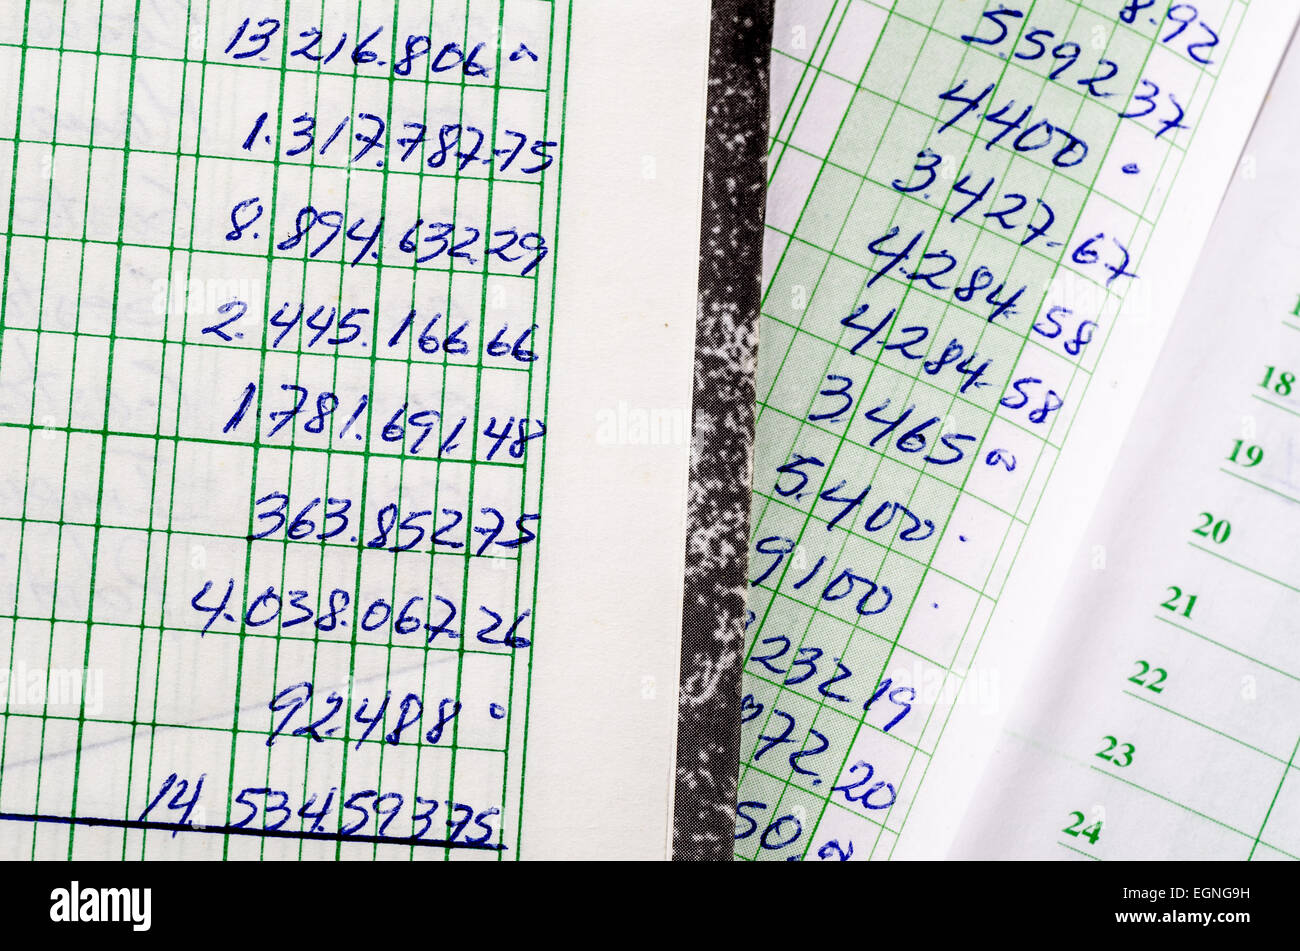 13.216.806 ~
1.317.787.75
8.894.632 29
2.445.166 66
1.781.691.48
363.852 75
4.038.067.26
92.488 °
14.534.593 75
8.92
5.592 37
4400 .
3.427.67
4.284.58
4284.58
3.465 ~
5.400 .
9100 .
232 19
72.20
50. ~
18
19
20
21
22
23
24
alamy
Image ID: EGNG9H
www.alamy.com